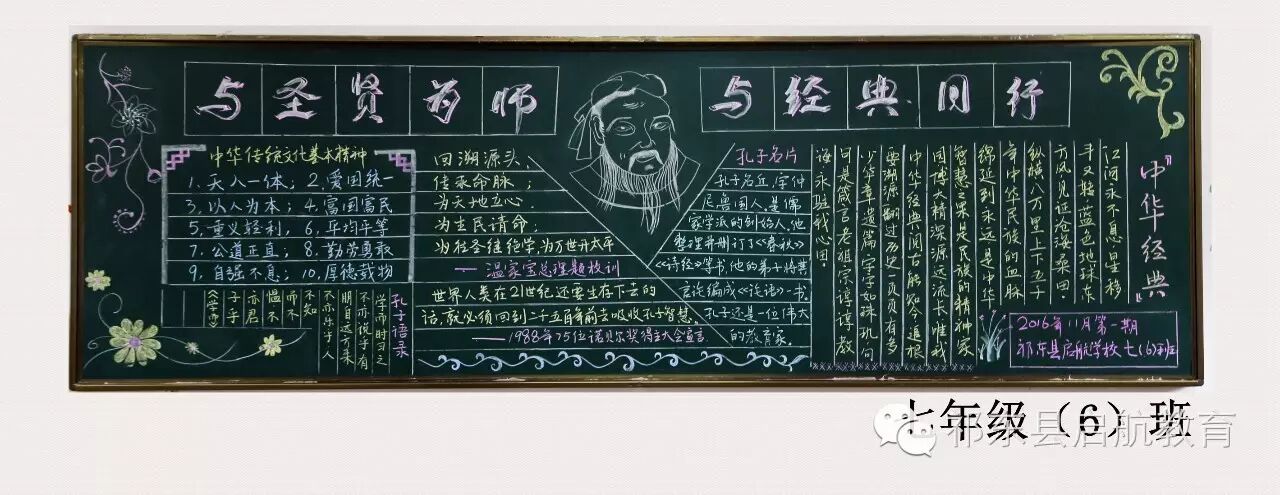 与圣贤为师
与经典同行
中华传统文化基本精神
1. 天人一体；2. 爱国统一
3. 以人为本；4. 富国富民
5. 重义轻利，6. 均平均等
7. 公道正直；8. 勤劳勇敢
9. 自强不息；10. 厚德载物
孔子语录
学而时习之
不亦说乎有
朋自远方来
不亦乐乎人
不知
而不
愠不
亦君
子乎
《学而》
回溯源头，
传承命脉；
为天地立心
为生民请命；
为往圣继绝学，为万世开太平
——温家宝总理题校训
世界人类在21世纪还要生存下去的
话，就必须回到二千五百年前去吸收孔子智慧。
——1988年75位诺贝尔奖得主大会宣言
孔子名片
孔子名丘，字仲
尼鲁国人，是儒
家学派的创始人，他
整理并删订了《春秋》
《诗经》等书，他的弟子将其
言论编成《论语》一书。
孔子还是一位伟大
的教育家。
“中华经典”
江河永不息，星移
斗又转，蓝色地球东
方风见证沧海桑田，
纵横八万里上下五千
年中华民族的血脉
绵延到永远是中华
智慧之果是民族的精神家
园博大精深源远流长唯我
中华经典阅古能知今追根
要溯源翻过历史一页页有多
少华章遗篇字字如珠玑句
句是箴言老祖宗谆谆教
诲永驻我心田。
2016年11月第一期
祁东县启航学校七（6）班
七年级（6）班
祁东县启航教育